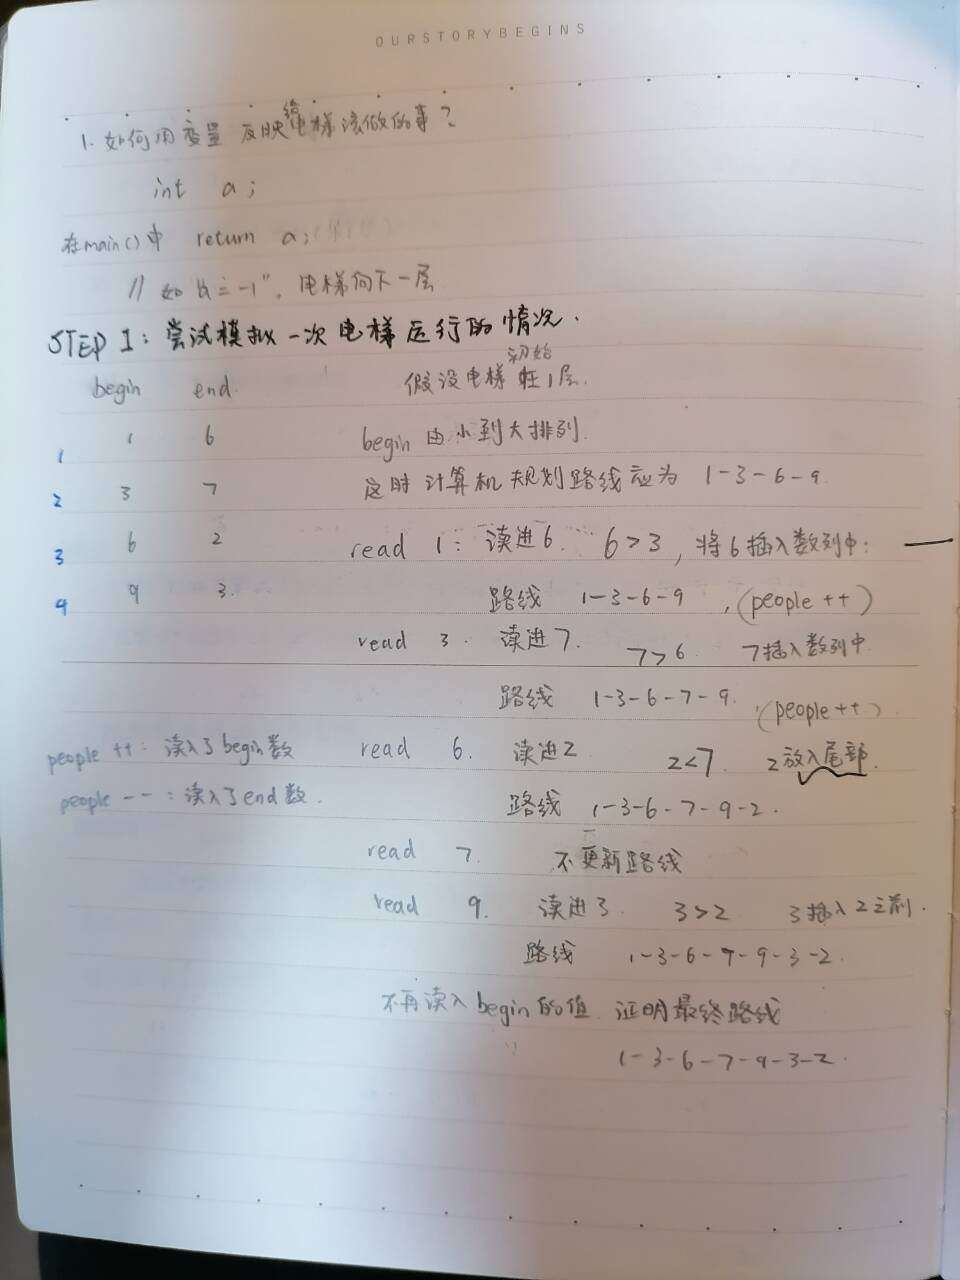 OURSTORYBEGINS
1. 如何用变量反映给电梯该做的事？
int a;
在main()中 return a;
// 如"a=-1", 电梯向下一层
STEP 1: 尝试模拟一次电梯运行的情况.
begin end. 假设电梯初始在1层.
1 1 6 begin由小到大排列.
2 3 7 这时计算机规划路线应为 1-3-6-9
3 6 2 read 1: 读进6. 6>3, 将6插入数列中:
4 9 3. 路线 1-3-6-9, (people ++)
read 3. 读进7. 7>6. 7插入数列中
路线 1-3-6-7-9. (people ++)
people ++: 读入了begin数 read 6. 读进2. 2<7. 2放入尾部.
people --: 读入了end数. 路线 1-3-6-7-9-2.
read 7. 不更新路线
read 9. 读进3. 3>2 3插入2之前.
路线 1-3-6-7-9-3-2.
不再读入begin的值. 证明最终路线
1-3-6-7-9-3-2.